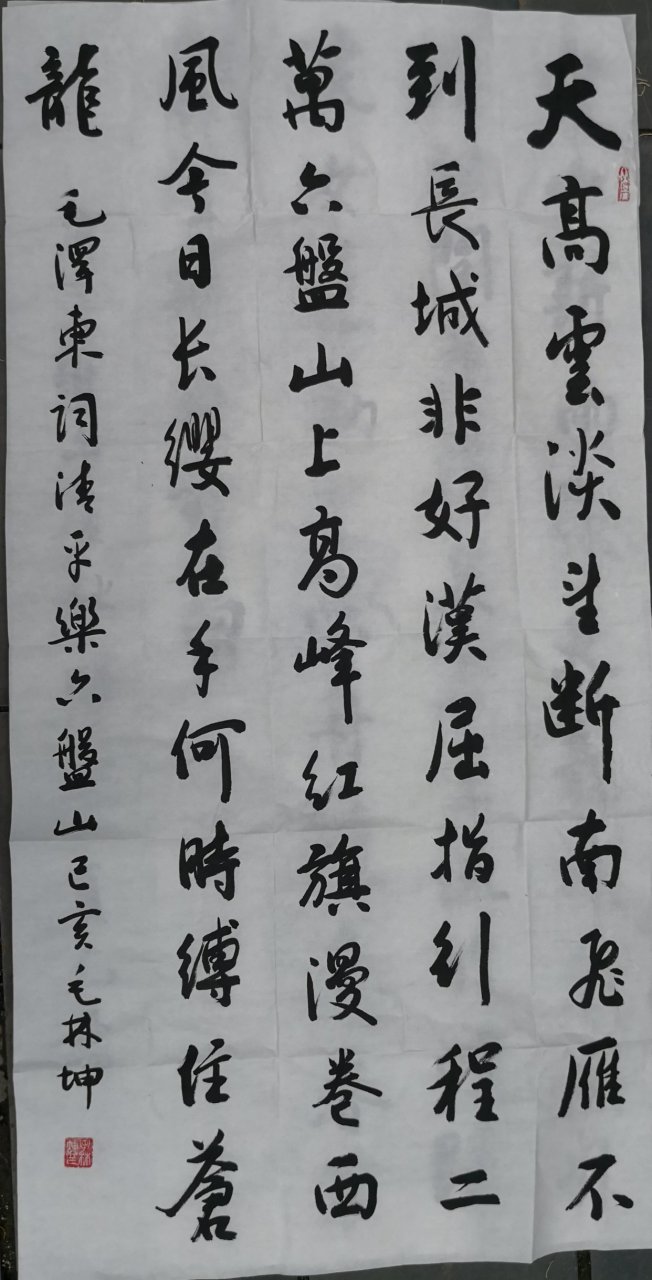 天高雲淡望断南飛雁不
到長城非好漢屈指行程二
萬六盤山上高峰紅旗漫卷西
風今日长纓在手何時縛住蒼
龍
毛澤東词清平樂六盤山己亥毛林坤